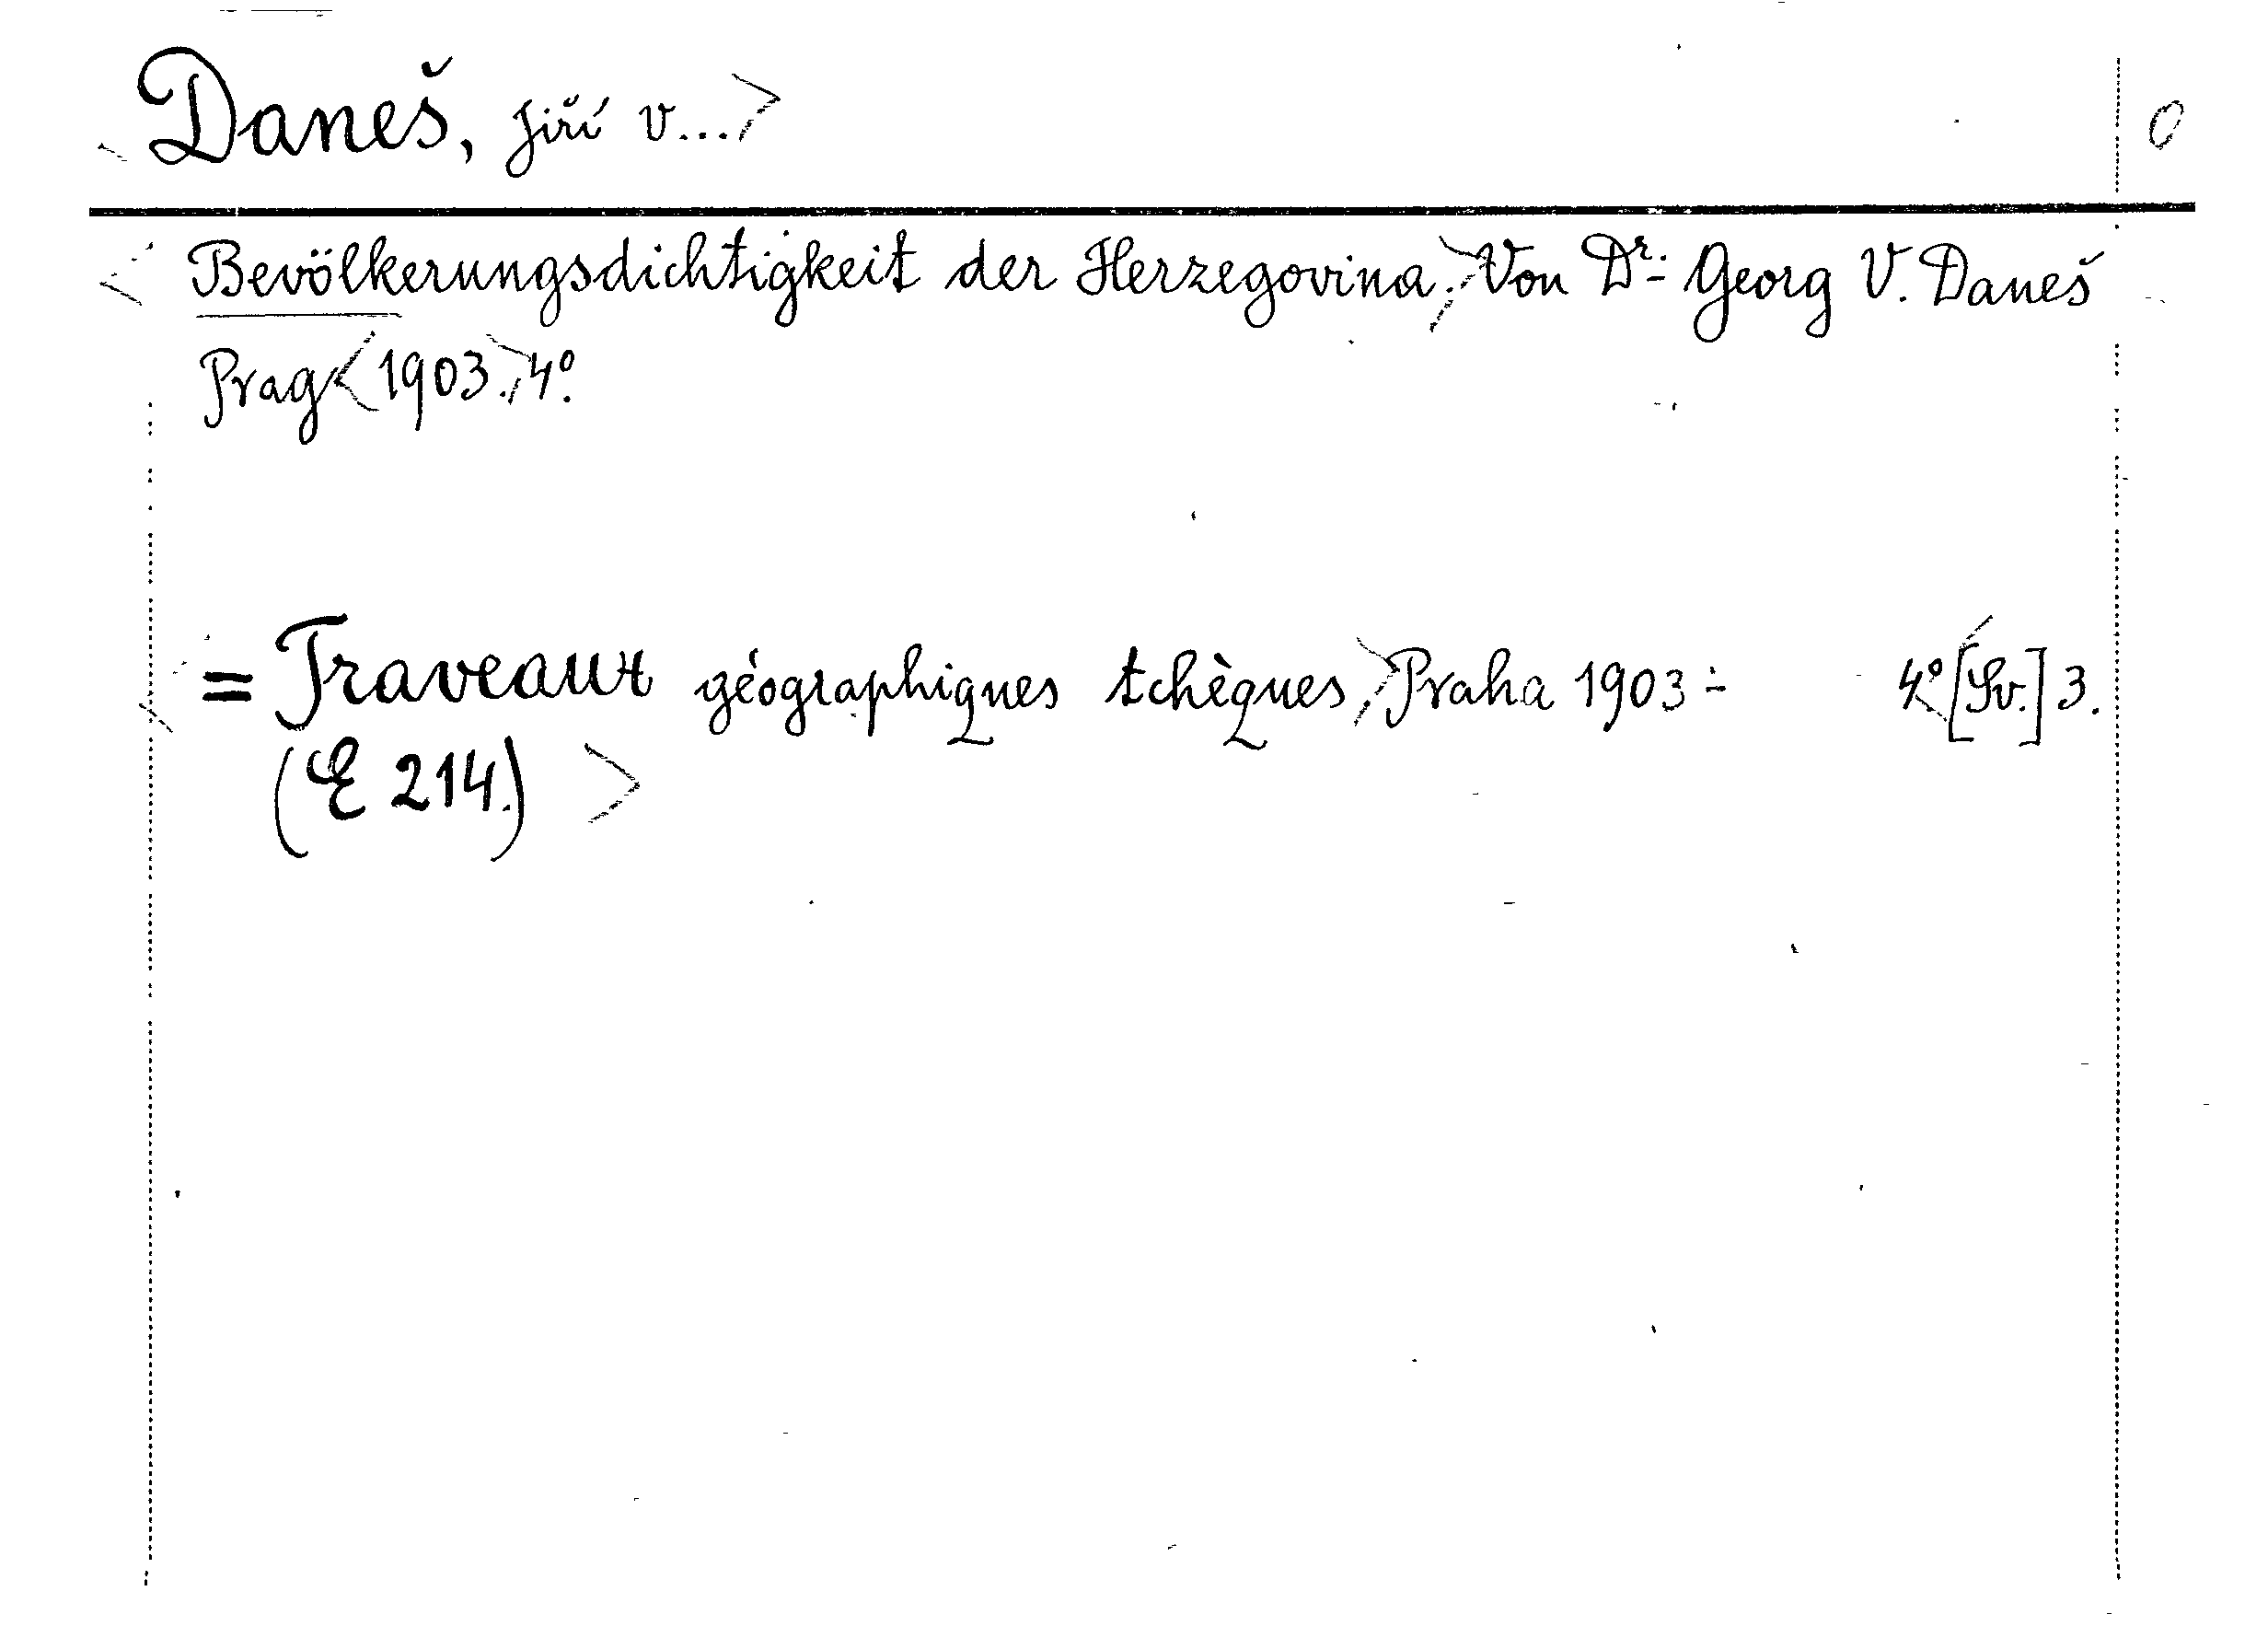 Daneš, Jiří V...> 0
<Bevölkerungsdichtigkeit der Herzegovina.> Von Dr. Georg V. Daneš
Prag <1903.> 4º.
<= Traveaux géographiques tchèques,> Praha 1903 ÷ 4º <[Sv.] 3.
(E 214.) >